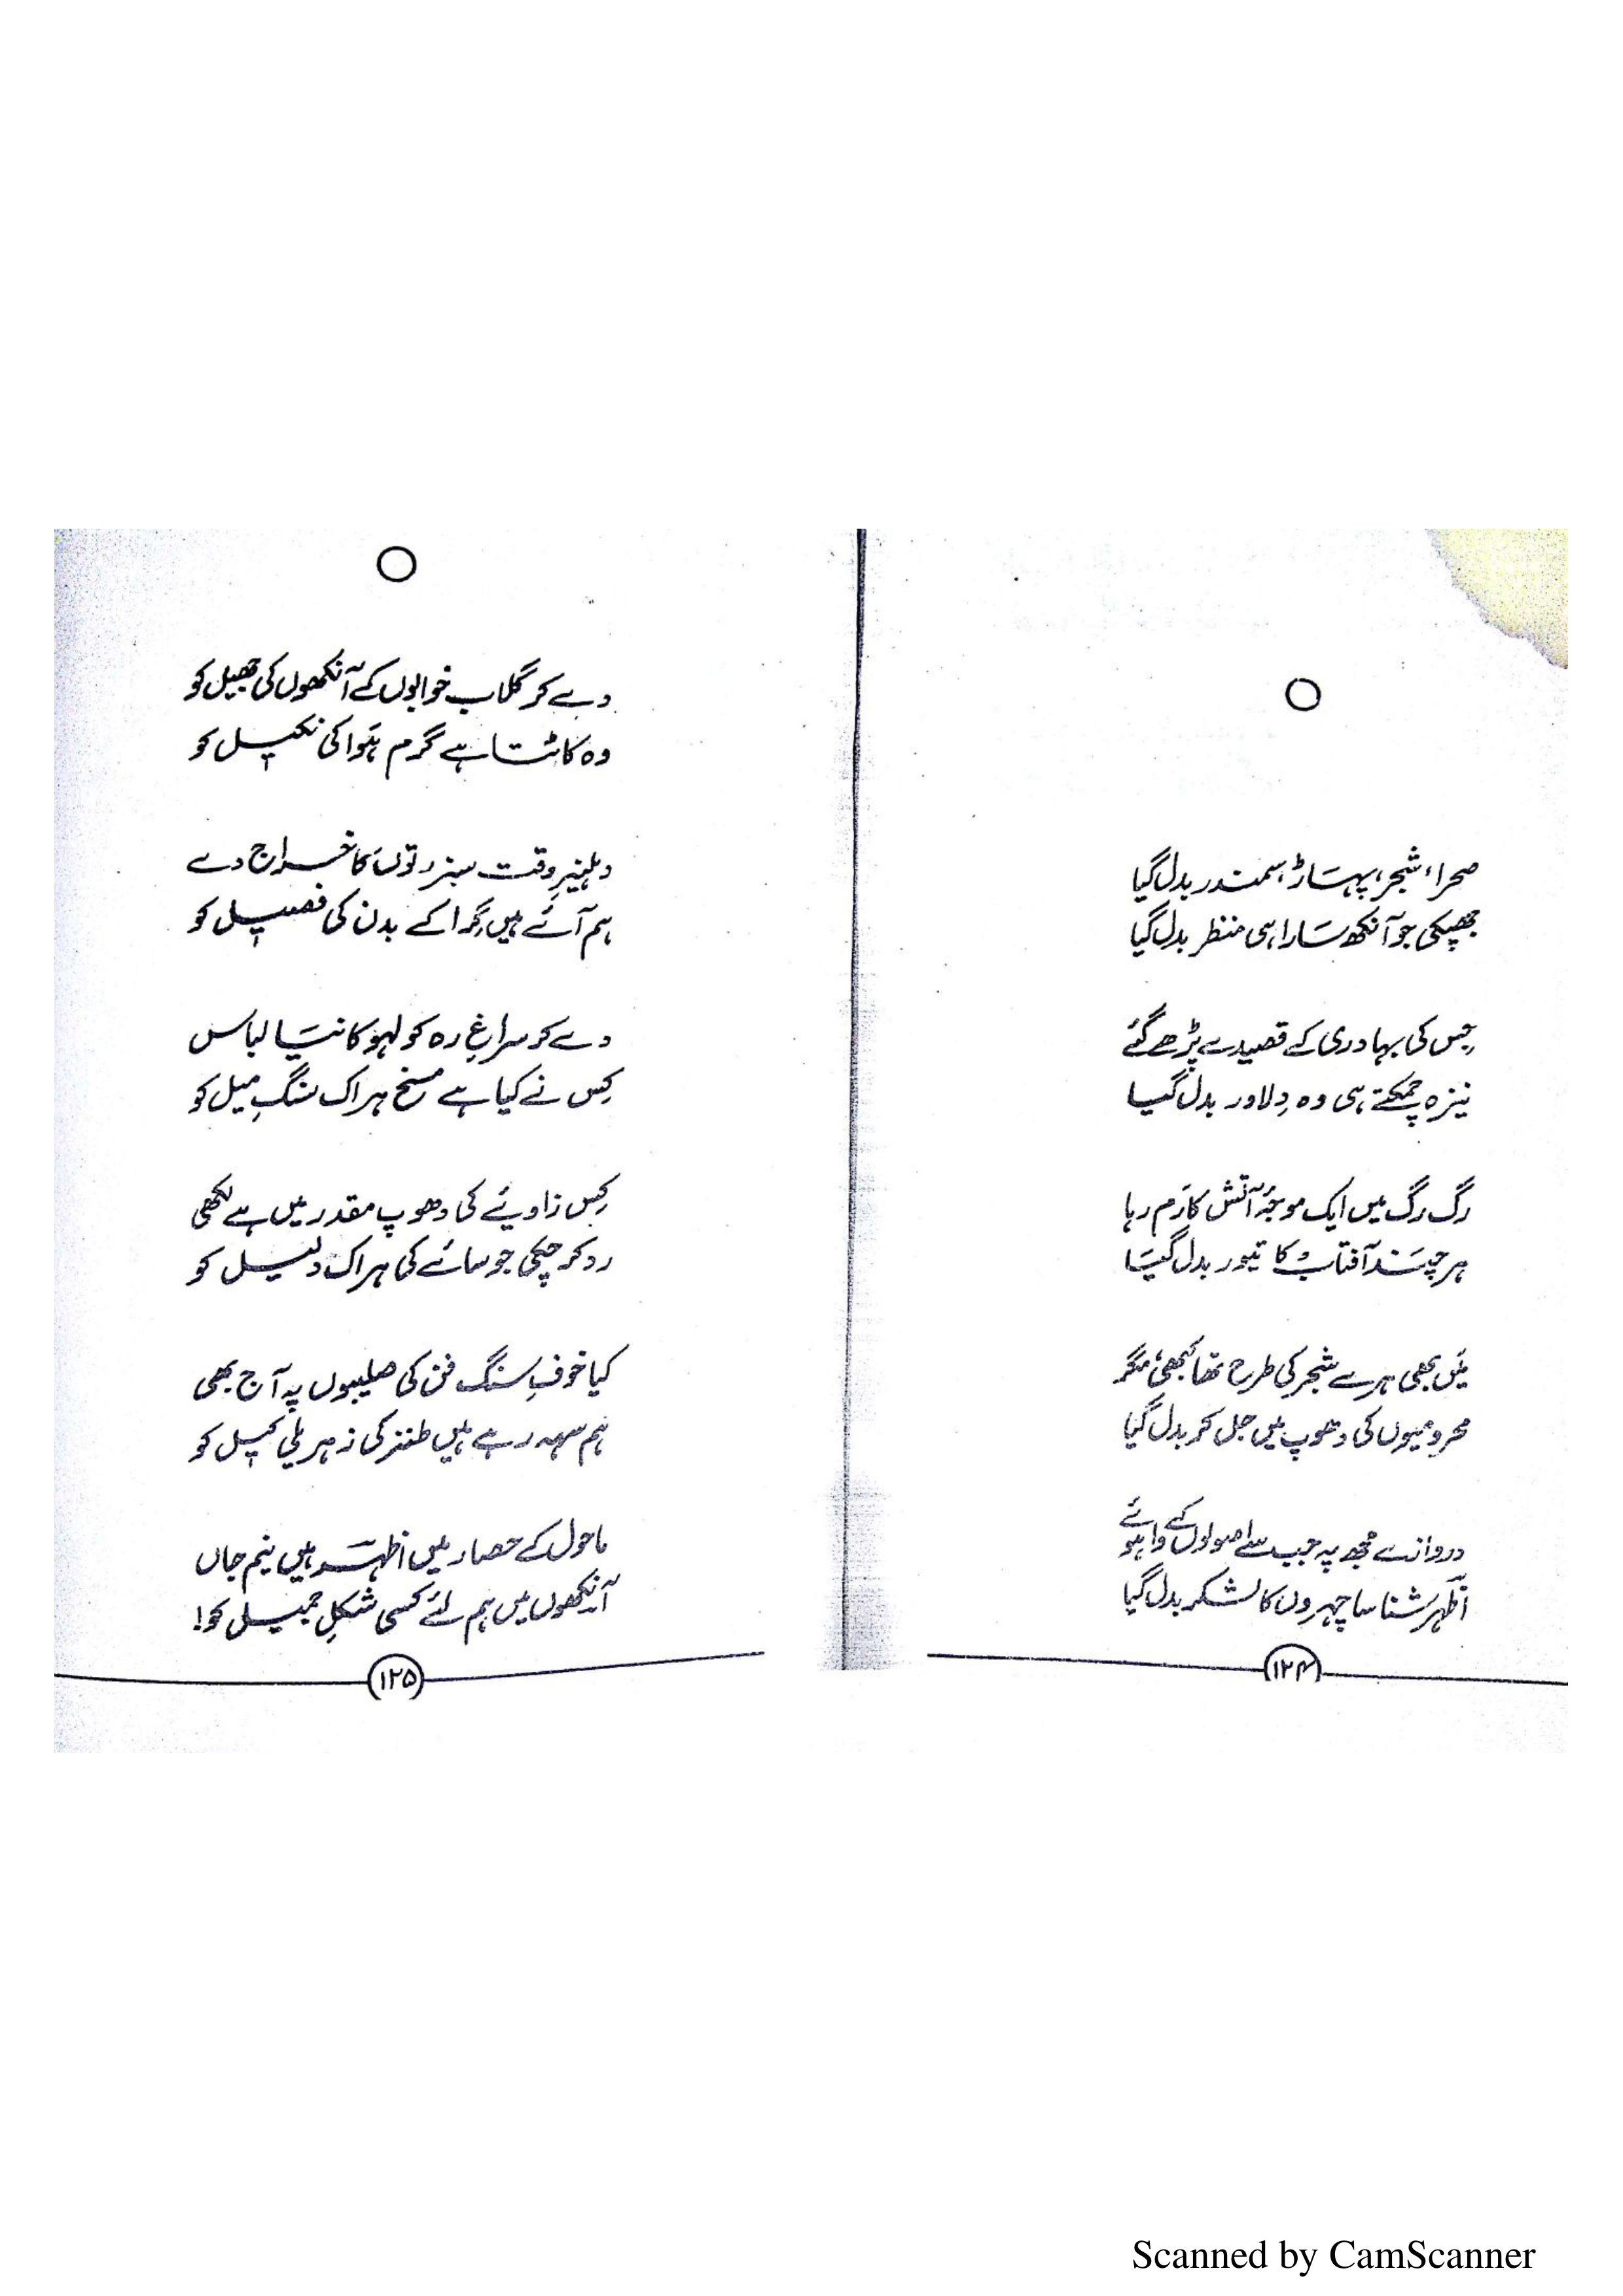 صحرا، شجر، پہاڑ، سمندر بدل گیا
جھپکی جو آنکھ سارا ہی منظر بدل گیا
جس کی بہادری کے قصیدے پڑھے گئے
نیزہ چمکتے ہی وہ دِلاور بدل گیا
رگ رگ میں ایک موجۂ آتش کا رَم رہا
ہر چند آفتاب کا تیور بدل گیا
میں بھی ہرے شجر کی طرح تھا کبھی مگر
محرومیوں کی دھوپ میں جل کر بدل گیا
دروازے مجھ پہ جب سے اصولوں کے وا ہوئے
اظہر شناسا چہروں کا لشکر بدل گیا
۱۲۴
دے کر گلاب خوابوں کے آنکھوں کی جھیل کو
وہ کاٹتا ہے گرم ہَوا کی نکیل کو
دہلیزِ وقت سبز رتوں کا خراج دے
ہم آئے ہیں گِرا کے بدن کی فصیل کو
دے کر سراغِ رہ کو لہو کا نیا لباس
کِس نے کیا ہے مسخ ہر اک سنگِ میل کو
کِس زاویئے کی دھوپ مقدر میں ہے لکھی
رد کر چکی جو سائے کی ہر اک دلیل کو
کیا خوفِ سنگ فن کی صلیبوں پہ آج بھی
ہم سہہ رہے ہیں طنز کی زہریلی کیل کو
ماحول کے حصار میں اظہر ہیں نیم جاں
آنکھوں میں ہم لئے کسی شکلِ جمیل کو!
۱۲۵
Scanned by CamScanner